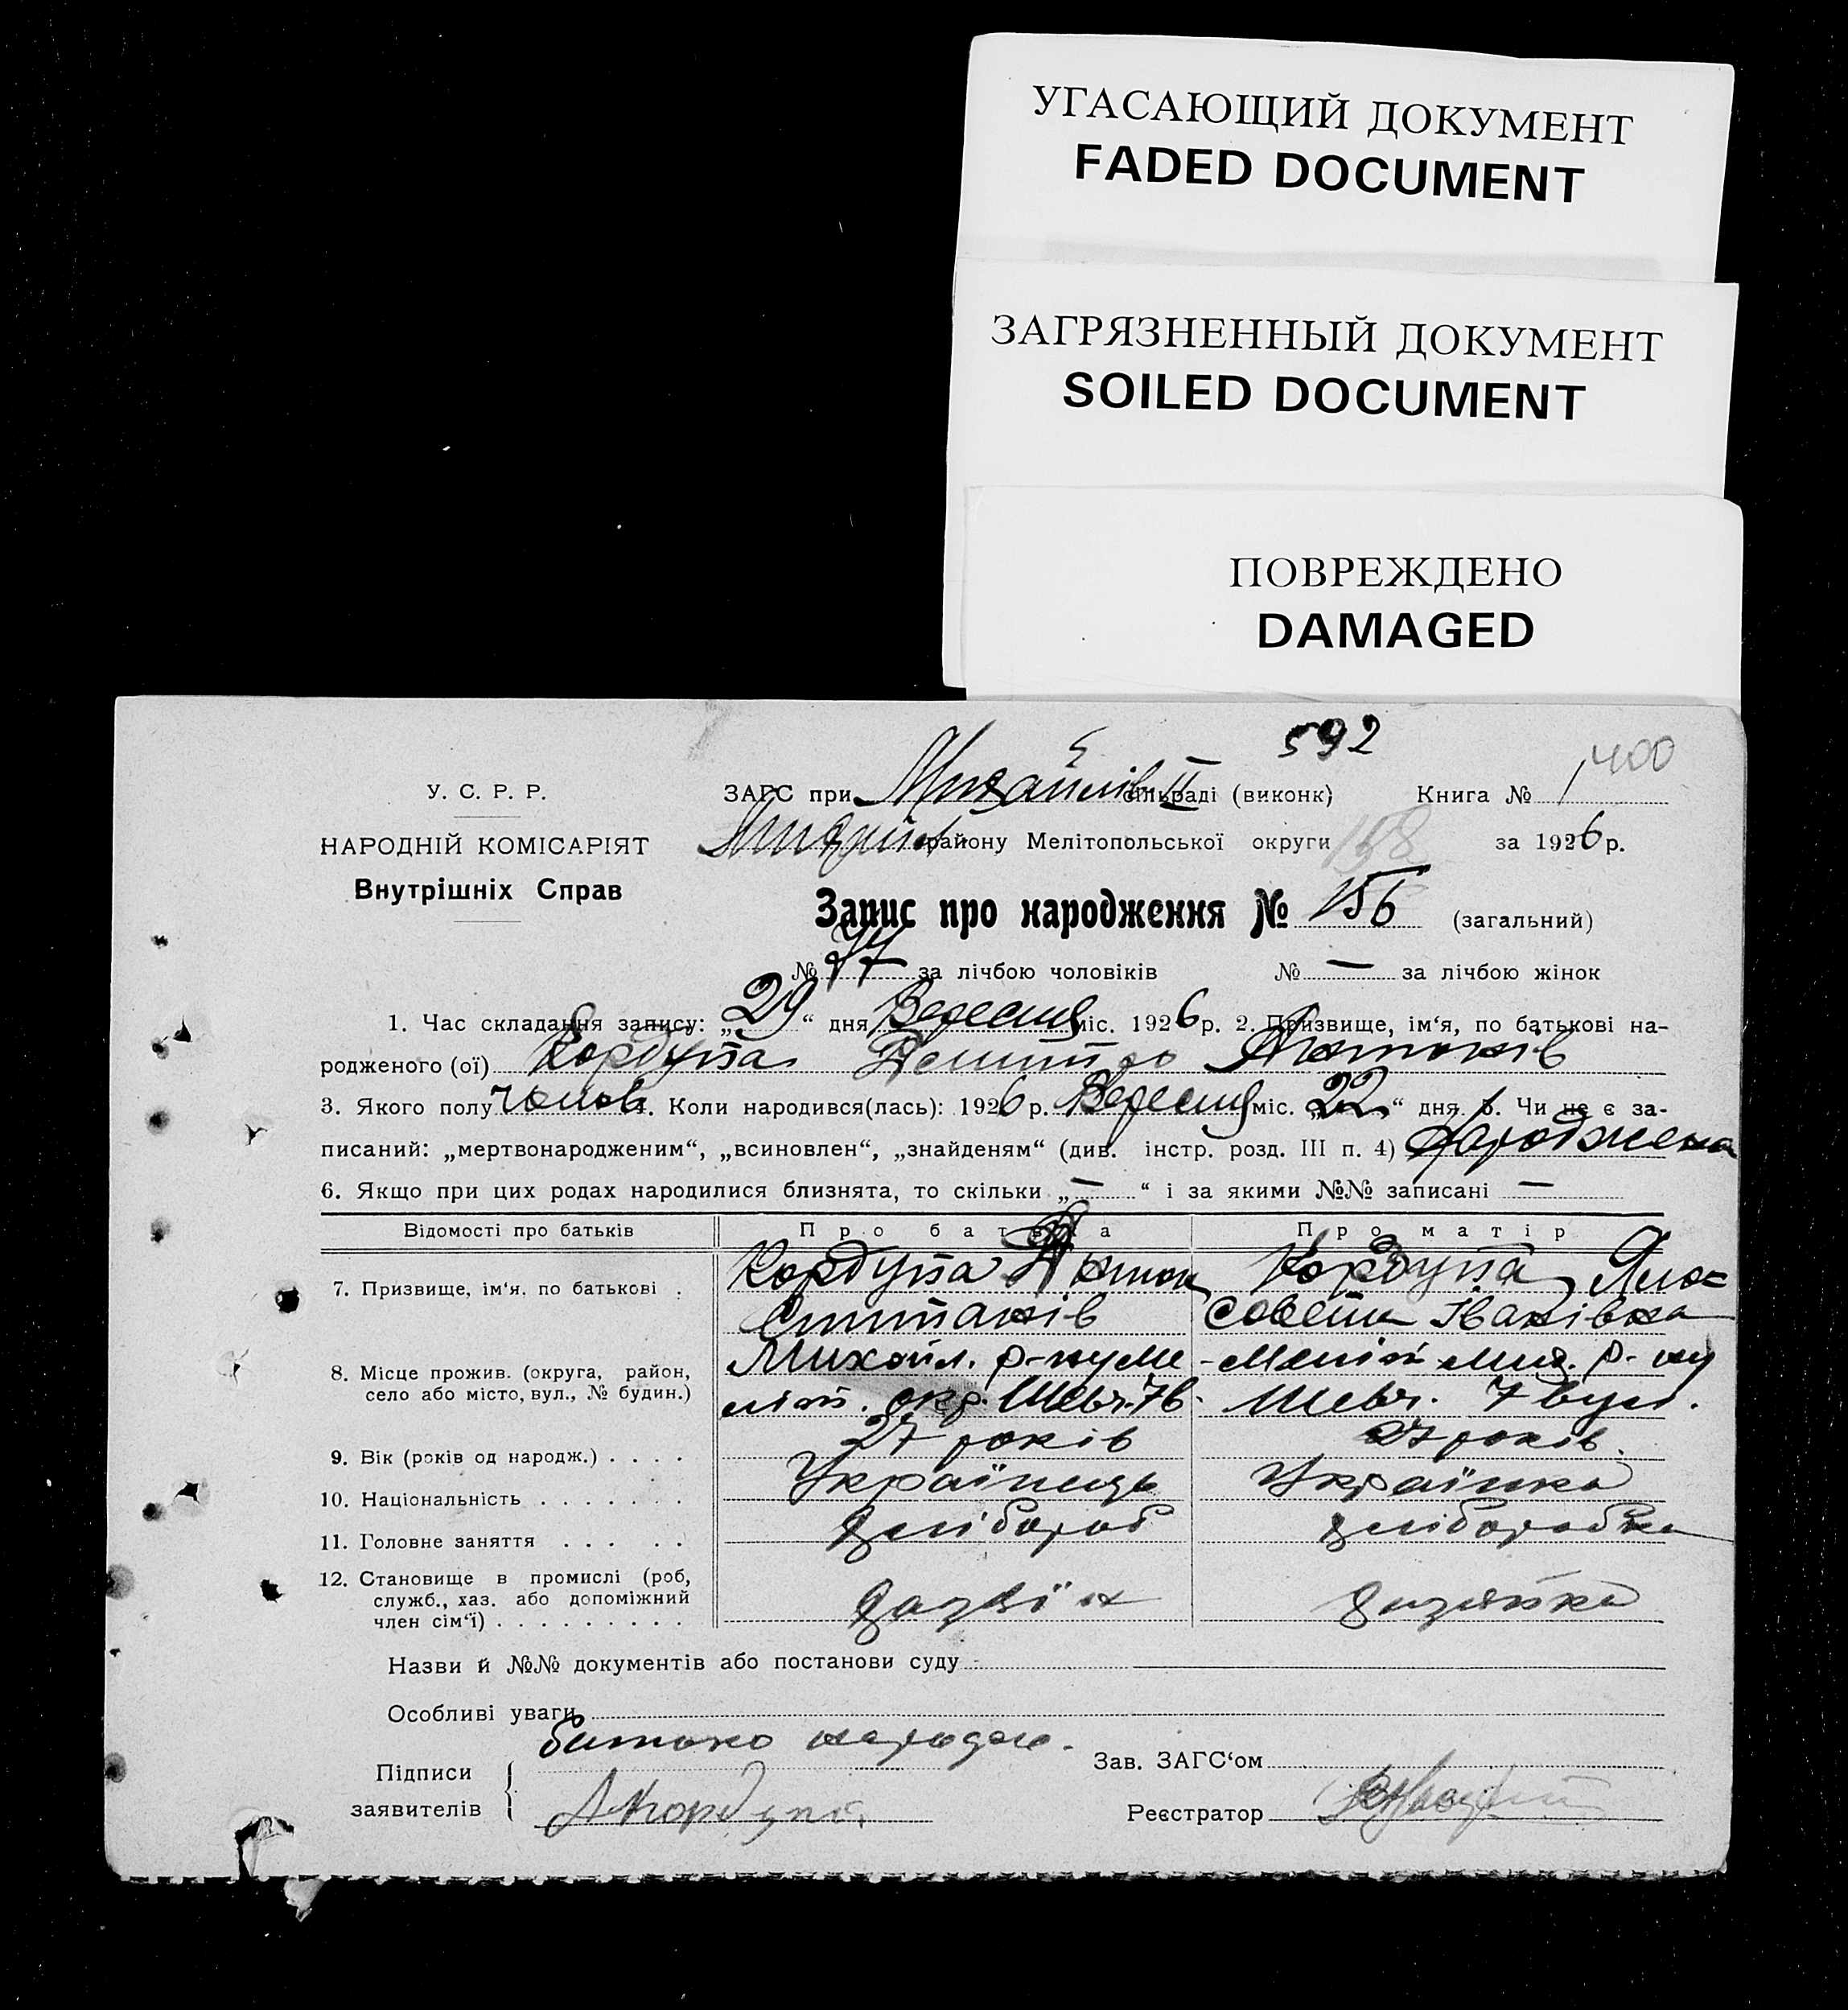 УГАСАЮЩИЙ ДОКУМЕНТ
FADED DOCUMENT
ЗАГРЯЗНЕННЫЙ ДОКУМЕНТ
SOILED DOCUMENT
ПОВРЕЖДЕНО
DAMAGED
592
400
У. С. Р. Р.
ЗАГС при Михайлів II сільраді (виконк) Книга № 1
НАРОДНІЙ КОМІСАРІЯТ
району Мелітопольської округи 158 за 1926 р.
Внутрішніх Справ
Запис про народження № 156 (загальний)
№ 77 за лічбою чоловіків № — за лічбою жінок
1. Час складання запису: „29“ дня Вересня міс. 1926 р. 2. Призвище, ім‘я, по батькові на-
родженого (ої) Кордупа Антонів
3. Якого полу чолов. 4. Коли народився(лась): 1926 р. Вересня міс. „22“ дня. 5. Чи не є за-
писаний: „мертвонародженим“, „всиновлен“, „знайденям“ (див. інстр. розд. III п. 4) народжена
6. Якщо при цих родах народилися близнята, то скільки „—“ і за якими №№ записані —
Відомості про батьків Про батька Про матір
7. Призвище, ім‘я. по батькові . Кордупа Антон Кордупа
Іванівна
8. Місце прожив. (округа, район, Михайл. р-ну Ме
село або місто, вул., № будин.) літ. окр. Шевч. 7 в. Шевч. 7 вул.
9. Вік (років од народж.) . . . . 27 років 27 років.
10. Національність . . . . . . . Українець Українка
11. Головне заняття . . . . . хлібороб хліборобка
12. Становище в промислі (роб,
служб., хаз. або допоміжний
член сім‘ї) . . . . . . . . . хазяїн хазяйка
Назви й №№ документів або постанови суду
Особливі уваги
Підписи
заявителів
Зав. ЗАГС‘ом
А Кордупа
Реєстратор